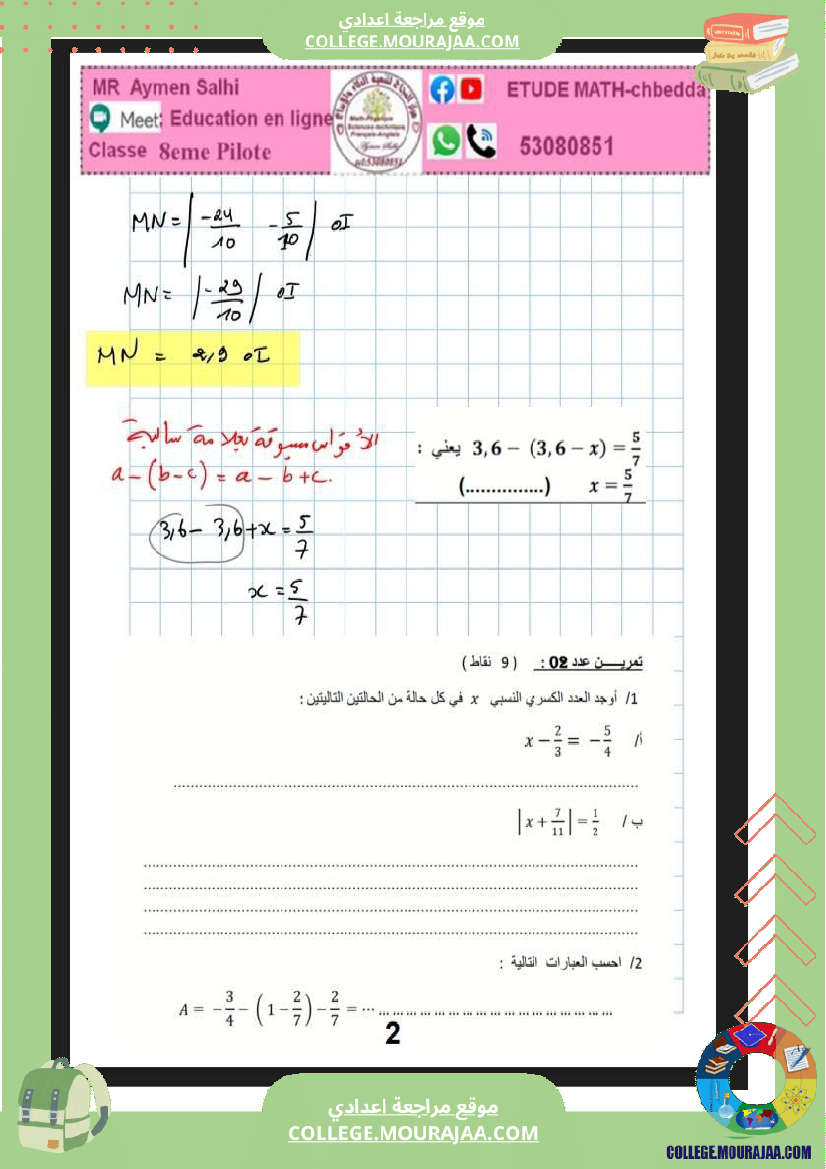 موقع مراجعة اعدادي
COLLEGE.MOURAJAA.COM
MR Aymen Salhi
Meet: Education en ligne
Classe 8eme Pilote
ETUDE MATH-chbedda
53080851
MN = |-24/10 - 5/10| OI
MN = |-29/10| OI
MN = 2,9 OI
الأقواس مسبوقة بعلامة سالبة
a - (b - c) = a - b + c.
3,6 - 3,6 + x = 5/7
x = 5/7
3,6 − (3,6 − x) = 5/7 يعني :
x = 5/7 (...............)
تمريـــن عدد 02 : ( 9 نقاط )
1/ أوجد العدد الكسري النسبي x في كل حالة من الحالتين التاليتين :
أ/ x − 2/3 = − 5/4
ب / |x + 7/11| = 1/2
2/ احسب العبارات التالية :
A = − 3/4 − (1 − 2/7) − 2/7 = ... ... ... ... ... ... ... ... ... ... ... ... ... ... ... ... ... ...
2
موقع مراجعة اعدادي
COLLEGE.MOURAJAA.COM
COLLEGE.MOURAJAA.COM